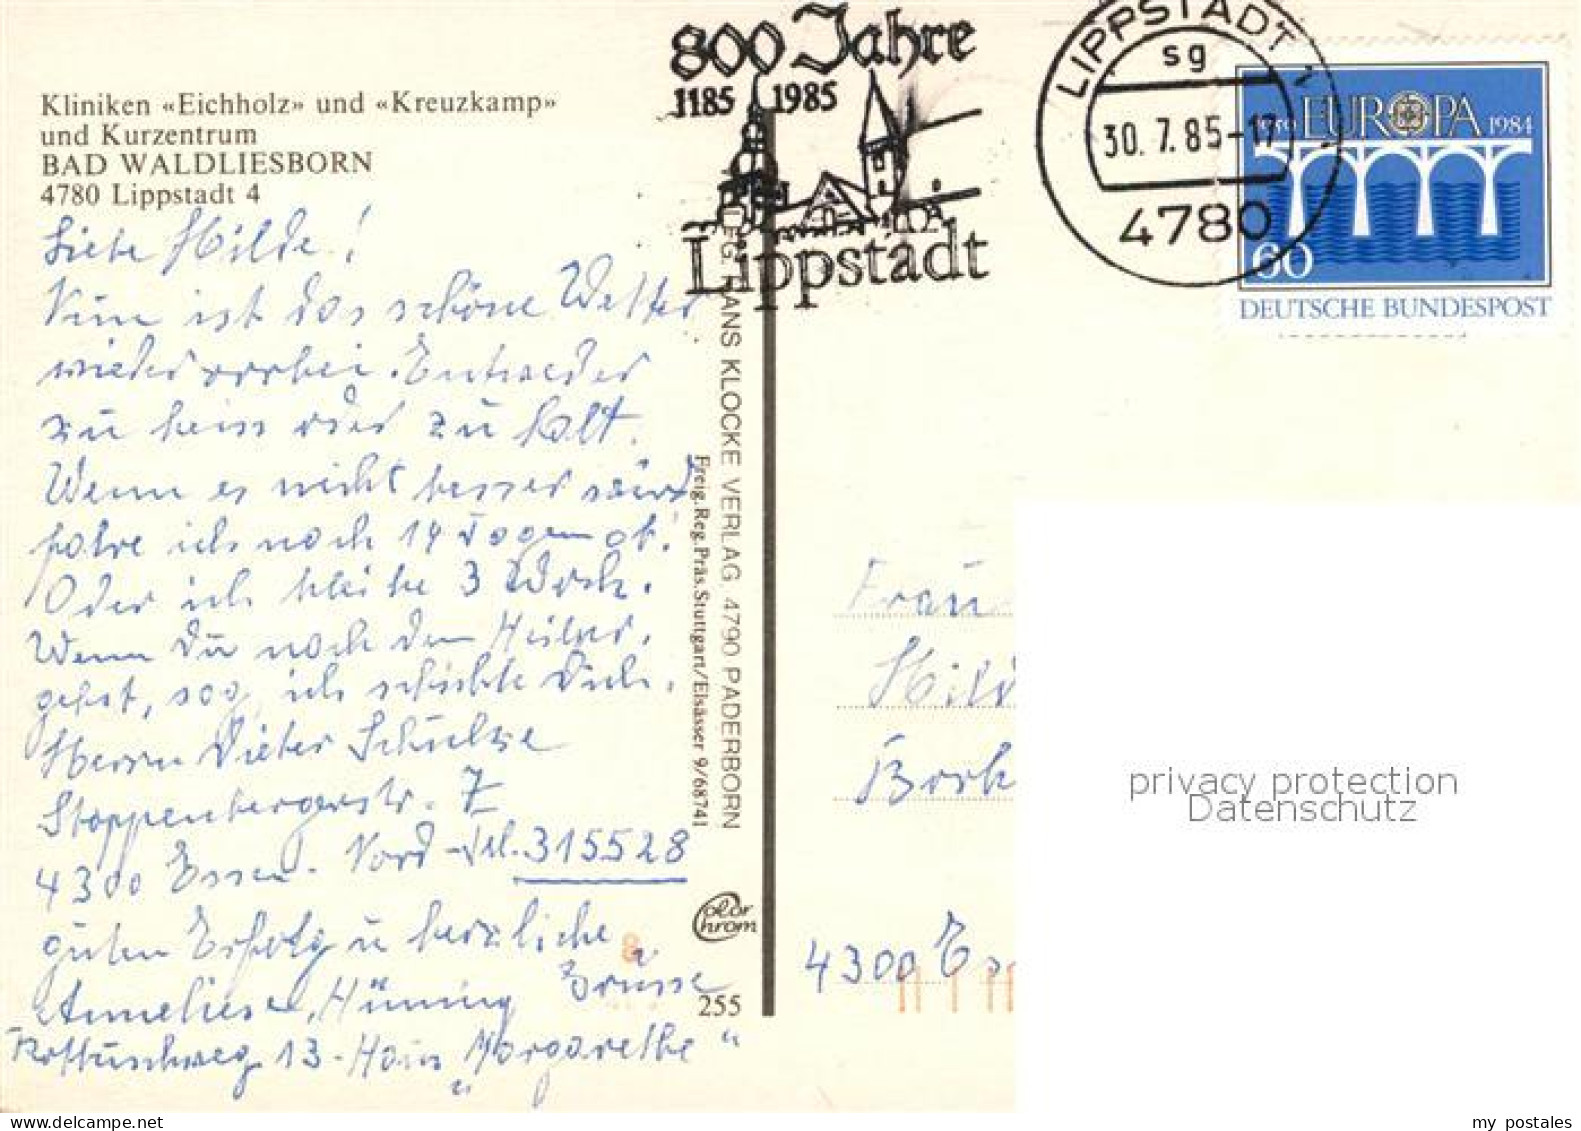 Kliniken «Eichholz» und «Kreuzkamp»
und Kurzentrum
BAD WALDLIESBORN
4780 Lippstadt 4
Liebe Hilde!
Nun ist das schöne Wetter
wieder vorbei. Entweder
zu heiss oder zu kalt.
Wenn es nicht besser wird
fahre ich nach 14 Tagen ab.
Oder ich bleibe 3 Woch.
Wenn Du noch den
gehst, sag, ich schickte Dich.
Herrn Dieter Schulze
Stoppenbergerstr. 7
4300 Essen. Nord-Tel. 315528
guten Erfolg u herzliche
Grüsse
Anneliese Hüning
13 - Haus „Margarethe“
800 Jahre
1185 1985
Lippstadt
LIPPSTADT 1
sg
30.7.85-17
4780
EUROPA 1984
60
DEUTSCHE BUNDESPOST
HANS KLOCKE VERLAG 4790 PADERBORN
Freig. Reg. Präs. Stuttgart/Elsässer 9/68741
Color
Chrom
255
Frau
Hild
Bork
4300 Es
privacy protection
Datenschutz
my postales